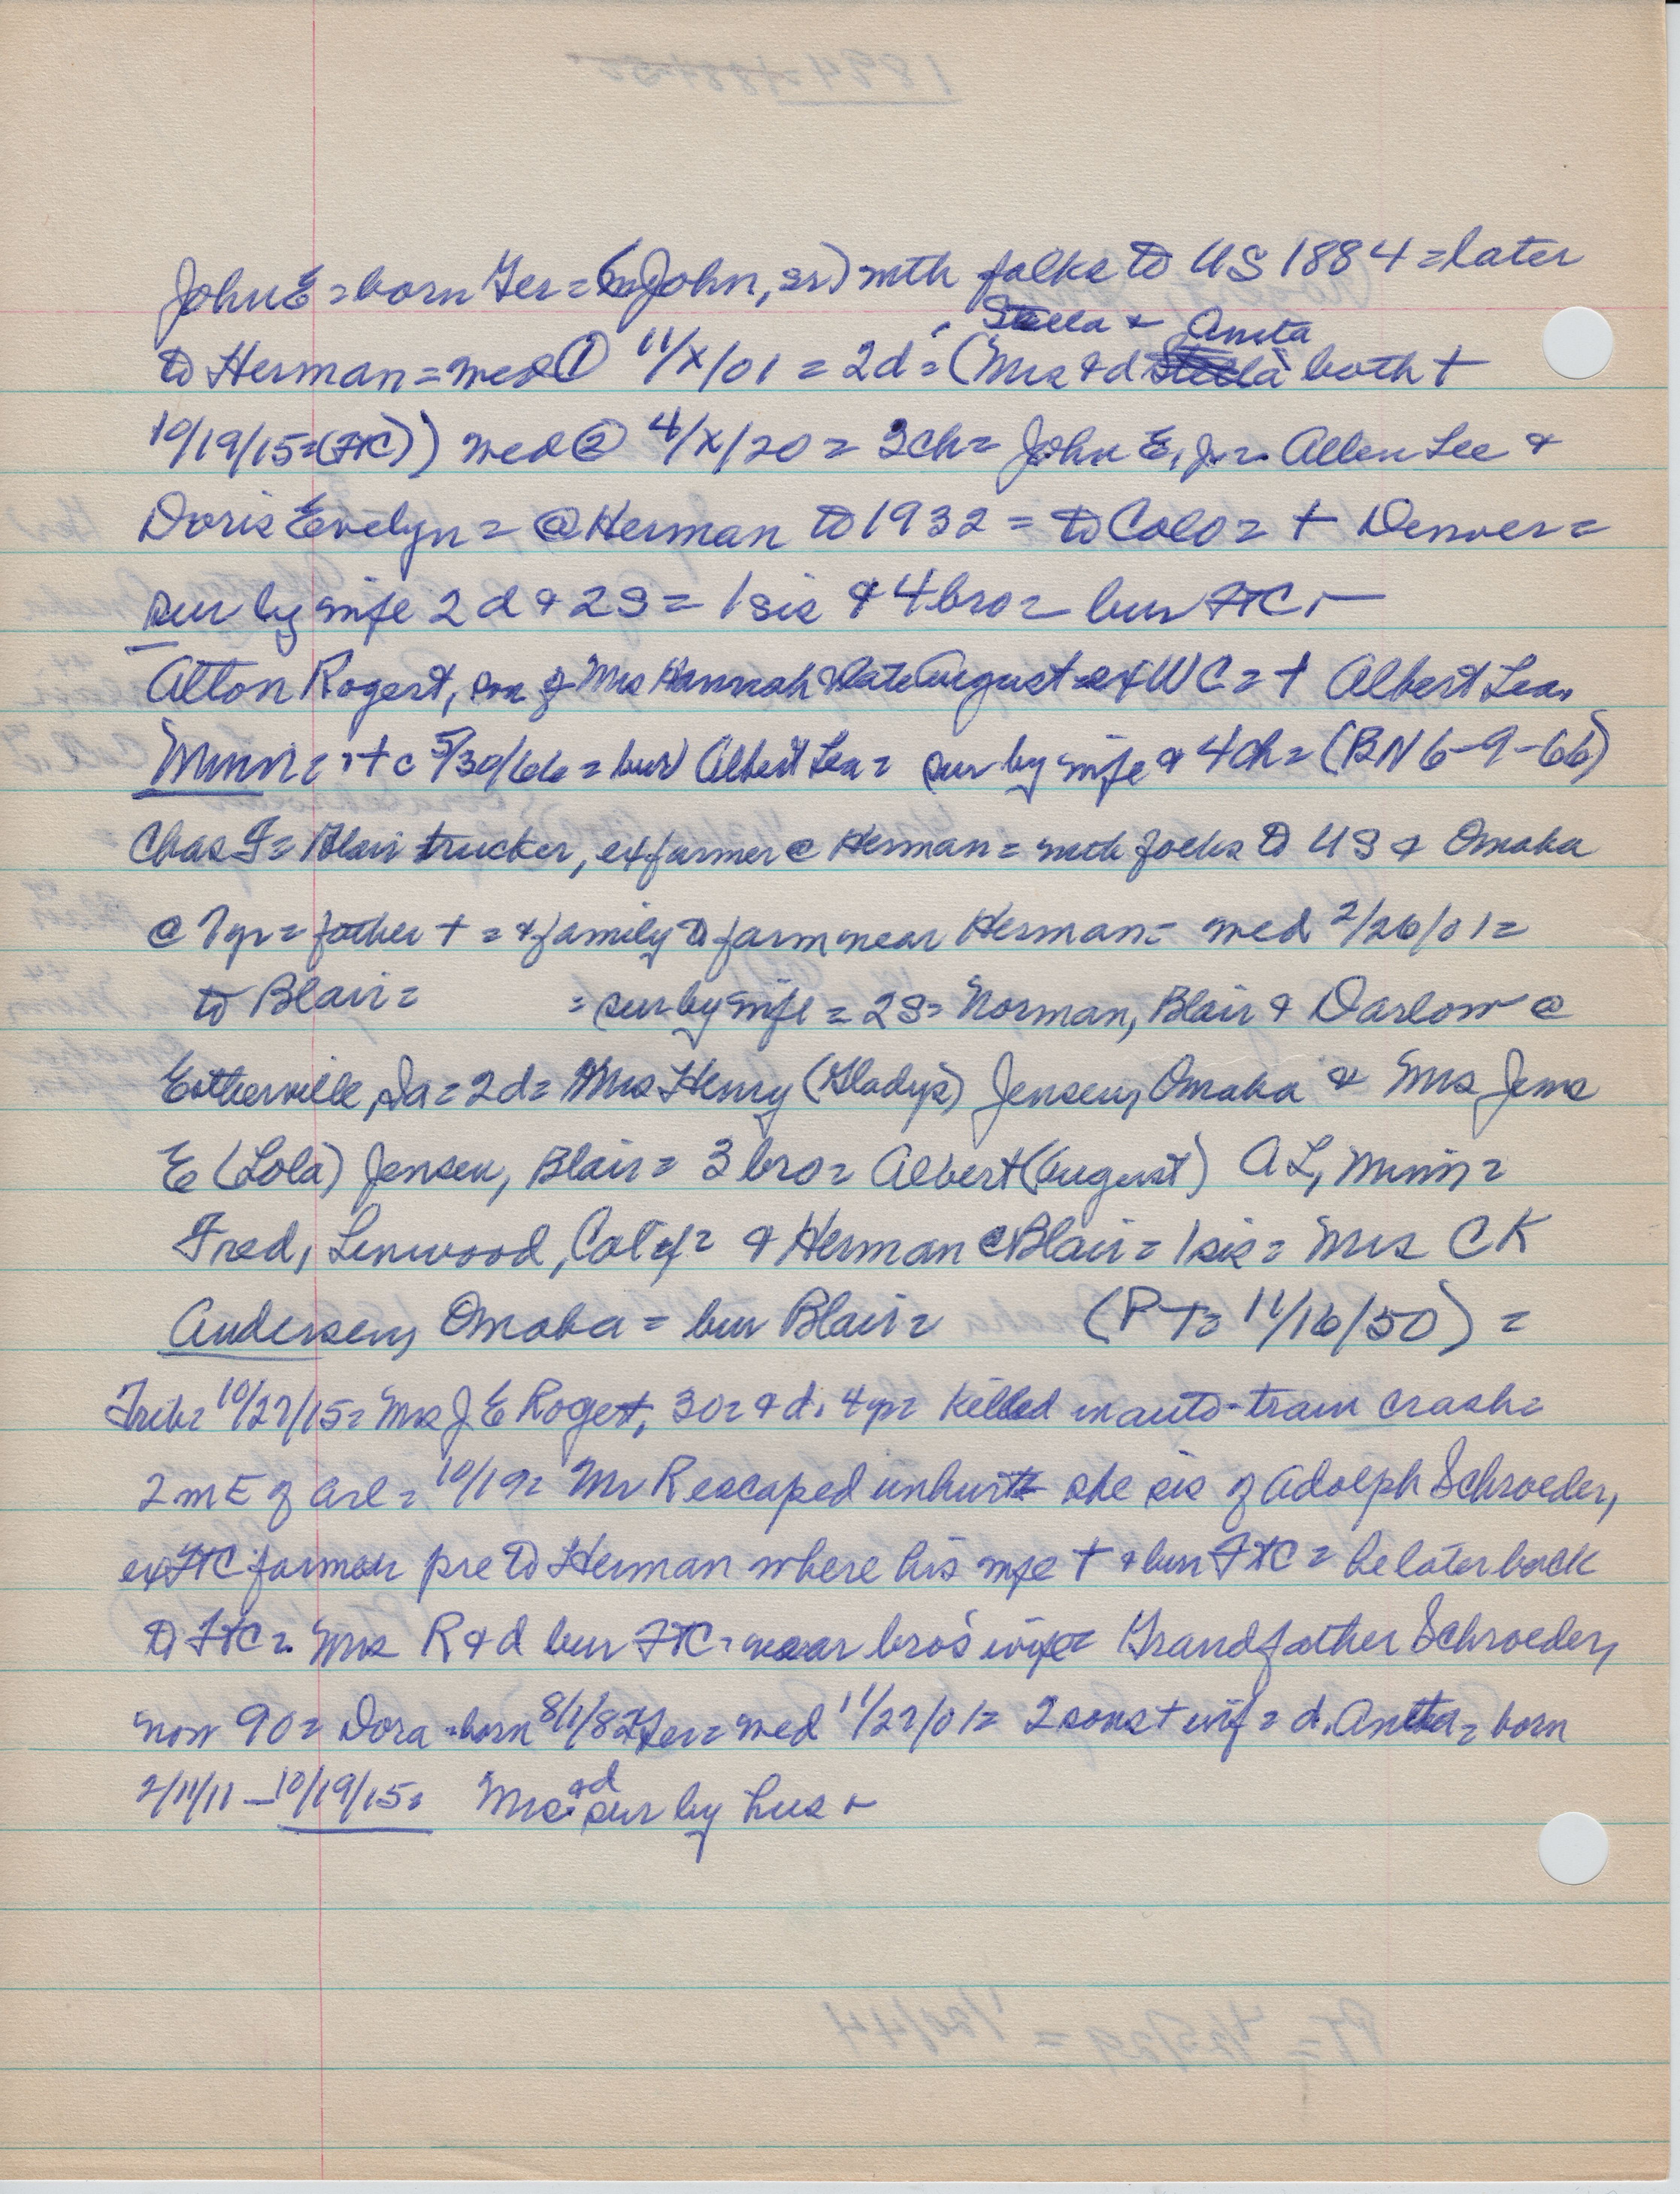 John E = born Ger = (to John, sr) with folks to US 1884 = later
Stella & Anita
to Herman = wed ① 11/X/01 = 2d = (Mrs & d both +
10/19/15 = (FtC)) wed ② 4/X/20 = 3ch = John E, jr = Allen Lee &
Doris Evelyn = @ Herman to 1932 = to Colo = + Denver =
sur by wife 2 d & 2S = 1 sis & 4 bro = bur FtC —
Alton Rogert, son of Mrs Hannah & late August = exWC = + Albert Lea,
Minn = + c 5/30/66 = bur Albert Lea = sur by wife & 4 ch = (BN 6-9-66)
Chas F = Blair trucker, exfarmer @ Herman = with folks to US & Omaha
@ 7 yr = father + = & family to farm near Herman = wed 2/26/01 =
to Blair = = sur by wife = 2S = Norman, Blair & Darlow @
Estherville, Ia = 2d = Mrs Henry (Gladys) Jensen, Omaha & Mrs Jens
E (Lola) Jensen, Blair = 3 bro = Albert (August) AL, Minn =
Fred, Linwood, Calif = & Herman @ Blair = 1 sis = Mrs CK
Andersen, Omaha = bur Blair = (PT = 11/16/50) =
Trib = 10/27/15 = Mrs J E Rogert, 30 = & d, 4 yr = killed in auto-train crash =
2 m E of Arl = 10/19 = Mr R escaped unhurt = she sis of Adolph Schroeder,
exFtC farmer pre to Herman where his wife + & bur FtC = he later back
to FtC = Mrs R & d bur FtC = near bro's wife = Grandfather Schroeder,
now 90 = Dora = born 8/1/82 Ger = wed 11/27/01 = 2 sons + inf = d. Anita = born
2/11/11 — 10/19/15 = Mrs & d sur by hus —